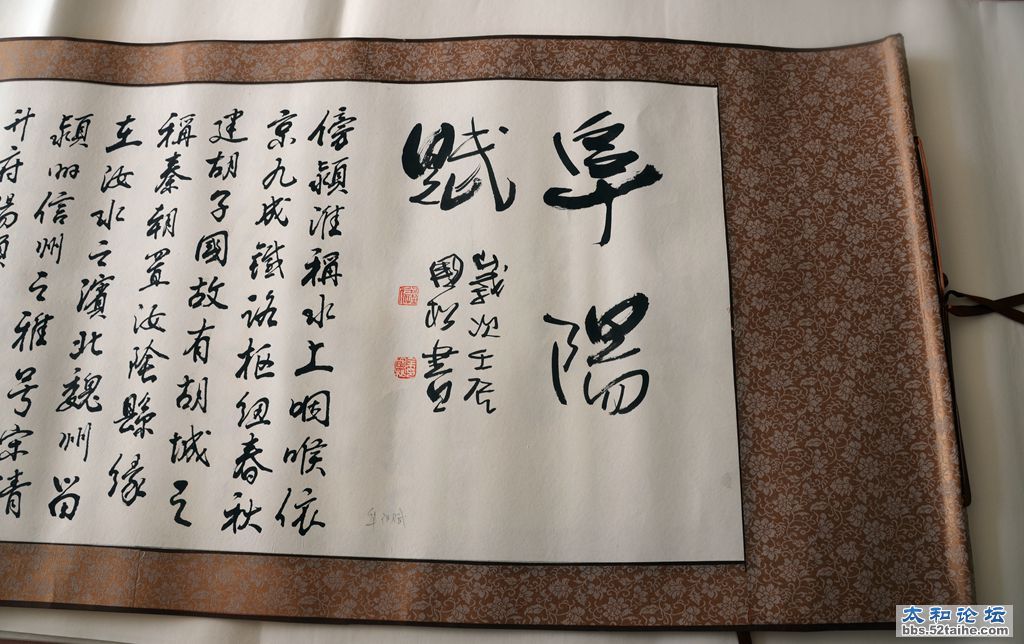 阜陽
賦
歲次壬辰
國松書
傍潁淮稱水上咽喉依
京九成鐵路樞紐春秋
建胡子國故有胡城之
稱秦朝置汝陰縣緣
在汝水之濱北魏州留
潁州信州之雅号宋清
升府陽順
阜陽賦
太和论坛
bbs.52taihe.com